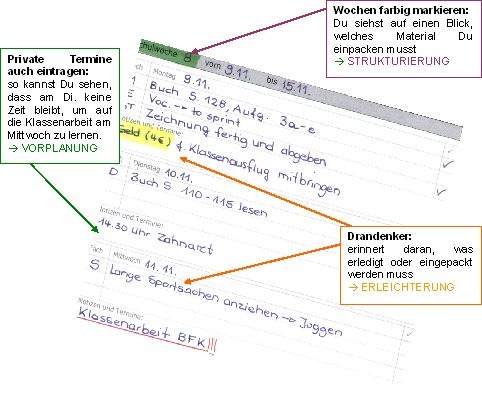 Wochen farbig markieren:
Du siehst auf einen Blick,
welches Material Du
einpacken musst
→ STRUKTURIERUNG
Private Termine
auch eintragen:
so kannst Du sehen,
dass am Di. keine
Zeit bleibt, um auf
die Klassenarbeit am
Mittwoch zu lernen.
→ VORPLANUNG
chulwoche 8 vom 9.11. bis 15.11.
ch Montag 9.11.
Buch S. 128, Aufg. 3a-e
E Voc. → to sprint
ST Zeichnung fertig und abgeben
otizen und Termine:
Geld (4€) f. Klassenausflug mitbringen
Dienstag 10.11.
D Buch S 110-115 lesen
Notizen und Termine:
14.30 Uhr Zahnarzt
Fach Mittwoch 11.11.
S Lange Sportsachen anziehen → Joggen
Notizen und Termine:
Klassenarbeit BFK!!!
Drandenker:
erinnert daran, was
erledigt oder eingepackt
werden muss
→ ERLEICHTERUNG